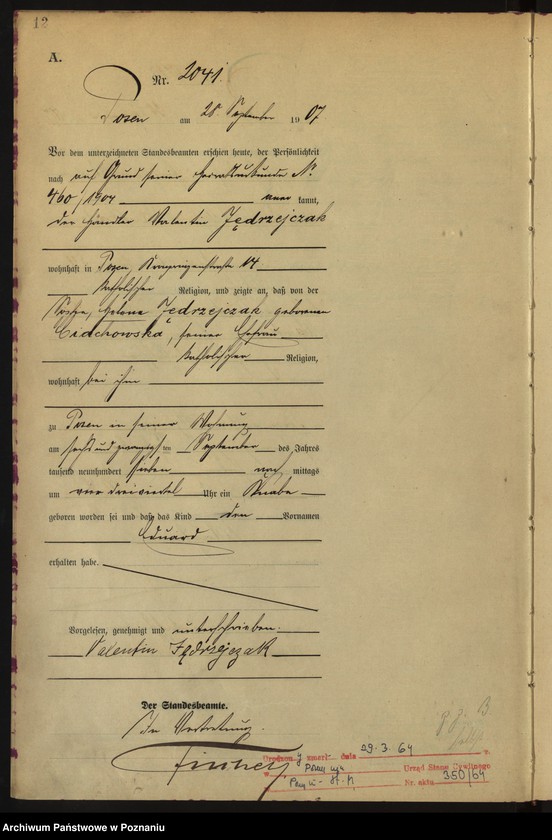 12
A.
Nr. 2041.
Posen am 28 September 1907
Vor dem unterzeichneten Standesbeamten erschien heute, der Persönlichkeit
nach auf Grund seiner Heiratsurkunde N°
460/1904 kannt,
der Händler Valentin Jędrzejczak
wohnhaft in Posen, Kronprinzenstraße 14
katholischer Religion, und zeigte an, daß von der
Jędrzejczak geborenen
Cichowska, seiner Ehefrau
katholischer Religion,
wohnhaft bei ihm
zu Posen in seiner Wohnung
am sechsundzwanzigsten September des Jahres
tausend neunhundert sieben nach mittags
um drei viertel Uhr ein Knabe
geboren worden sei und daß das Kind den Vornamen
Eduard
erhalten habe.
Vorgelesen, genehmigt und unterschrieben.
Valentin Jędrzejczak
Der Standesbeamte.
In Vertretung.
dnia 29.3.64 r.
Urząd Stanu Cywilnego
Nr. aktu 350/64
Archiwum Państwowe w Poznaniu